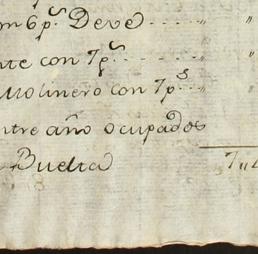 con 6 p.s Deve - - - - "
nte con 7 p.s - - - - "
Molinero con 7 p.s - - "
ntre año ocupados
Buelta